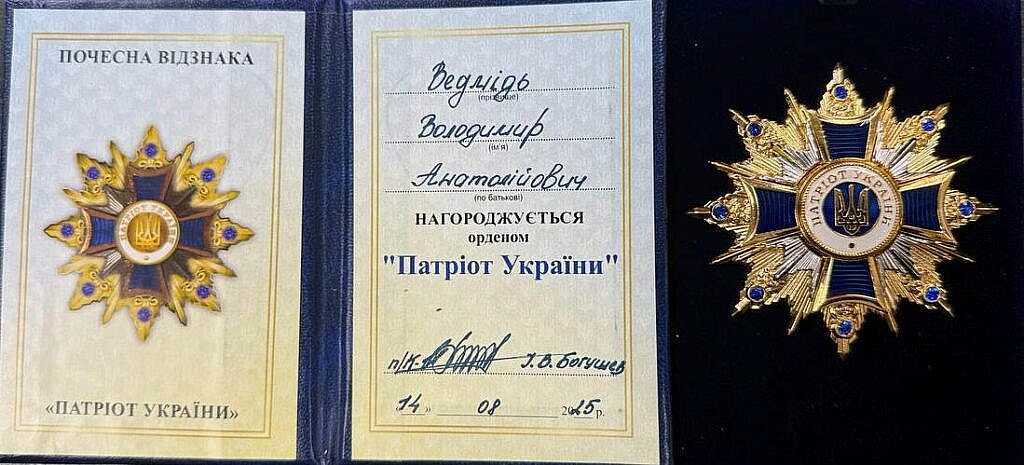 ПОЧЕСНА ВІДЗНАКА
ПАТРІОТ УКРАЇНИ
«ПАТРІОТ УКРАЇНИ»
Ведмідь
(прізвище)
Володимир
(ім'я)
Анатолійович
(по батькові)
НАГОРОДЖУЄТЬСЯ
орденом
"Патріот України"
п/к-к І. В. Богушев
«14» 08 2025р.
ПАТРІОТ УКРАЇНИ